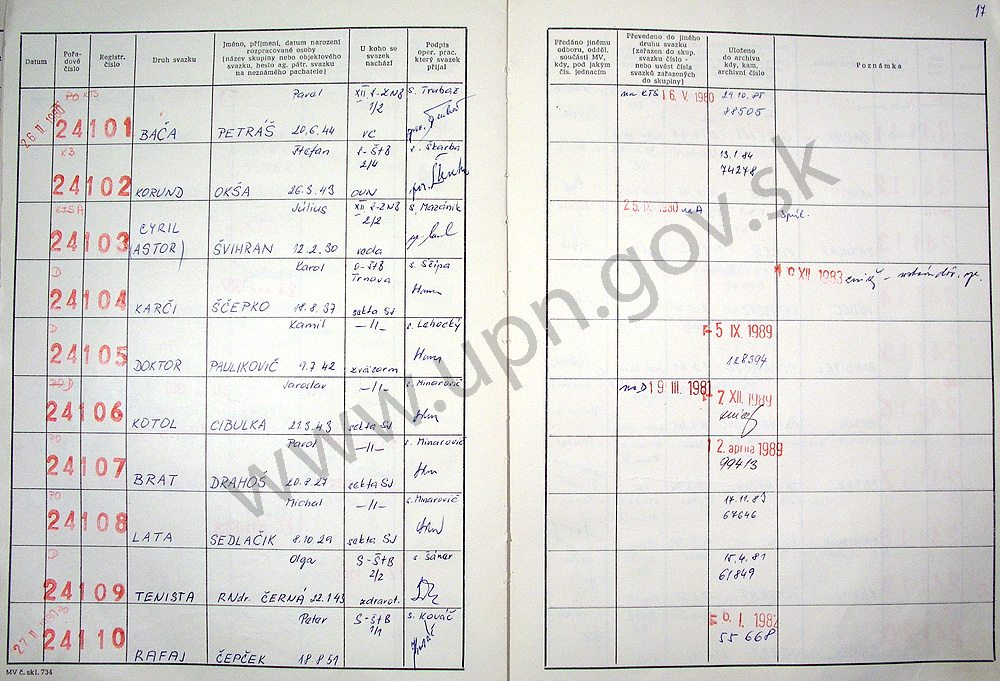 17
Datum
Pořadové číslo
Registr. číslo
Druh svazku
Jméno, příjmení, datum narození rozpracované osoby (název skupiny nebo objektového svazku, heslo ag. pátr. svazku na neznámého pachatele)
U koho se svazek nachází
Podpis oper. prac. který svazek přijal
Předáno jinému odboru, odděl. součásti MV, kdy, pod jakým čís. jednacím
Převedeno do jiného druhu svazku (zařazen do skup. svazku číslo - nebo uvést čísla svazků zařazených do skupiny)
Uloženo do archivu kdy, kam, archivní číslo
Poznámka
26 II 1980
PO KTS
Pavol
XII S-ZNB
s. Trubač
na KTS 16. V. 1980
29.10.85
1/2
24101
BAČA
PETRÁŠ 20.6.44
VC
88505
KB
Štefan
S-ŠtB
s. Škarba
13.1.84
2/4
24102
KORUND
OKŠA 26.3.43
DUN
74278
Július
XII S-ZNB
s. Mazánik
25. IX. 1980 na A
2/2
24103
CYRIL
(ASTOR)
ŠVIHRAN 12.2.30
voda
D
Karol
O-ŠtB
s. Ščipa
0 XII. 1983
Trnava
24104
KARČI
ŠČEPKO 18.8.37
sekta SJ
D
Kamil
-11-
s. Lehocký
5 IX. 1989
24105
DOKTOR
PAULIKOVIČ 9.7.42
zväzarm
128394
D
Jaroslav
-11-
s. Minarovič
na D 19. III. 1981
7 XII. 1989
24106
KOTOL
CIBULKA 21.3.43
sekta SJ
PO
Pavol
-11-
s. Minarovič
12. apríla 1989
24107
BRAT
DRAHOŠ 20.8.27
sekta SJ
99413
PO
Michal
-11-
s. Minarovič
17.11.83
24108
LATA
SEDLAČIK 8.10.29
sekta SJ
67646
D
Olga
S-ŠtB
s. Šánar
15.4.81
2/2
24109
TENISTA
RNdr. ČERNÁ 22.1.43
zdravot.
61849
27 II 1980
Peter
S-ŠtB
s. Kováč
6. I. 1982
1/1
24110
RAFAJ
ČEPČEK 18.8.51
55 668
MV č. skl. 734
www.upn.gov.sk